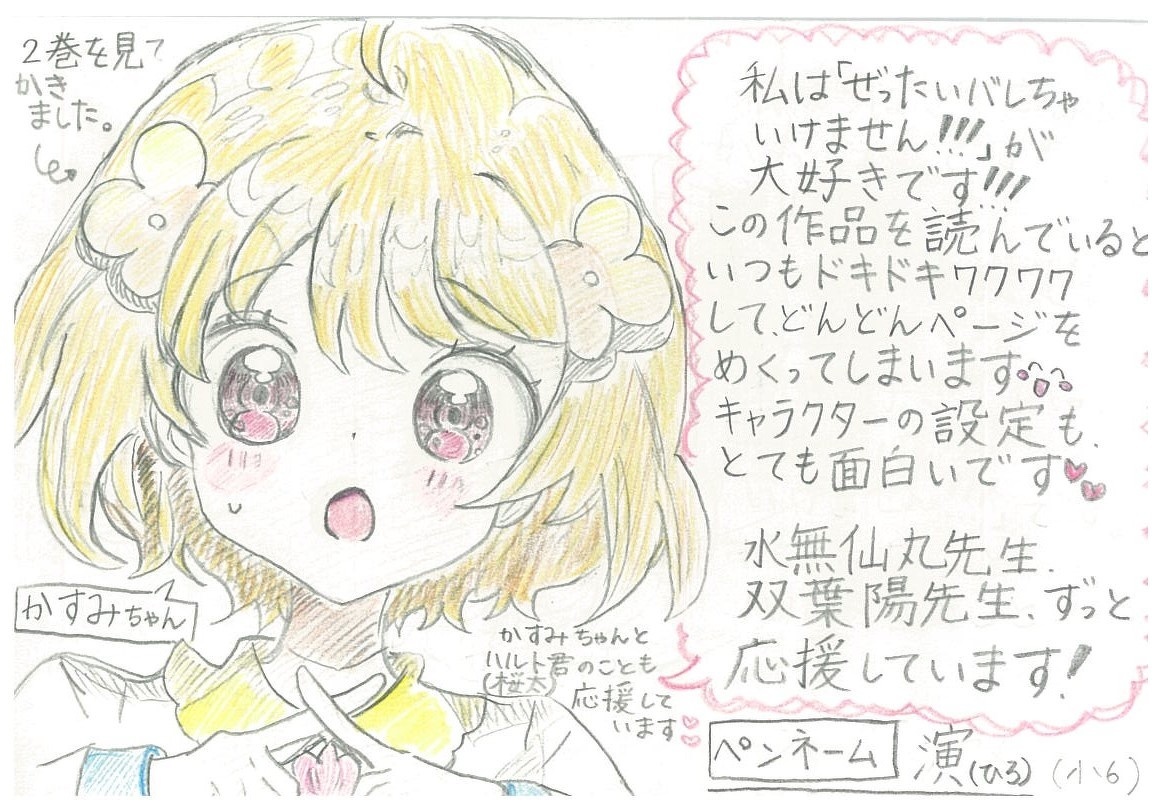 2巻を見て
かき
ました。
私は「ぜったいバレちゃ
いけません!!!」が
大好きです!!!
この作品を読んでいると
いつもドキドキワクワク
して、どんどんページを
めくってしまいます
キャラクターの設定も、
とても面白いです
水無仙丸先生、
双葉陽先生、ずっと
応援しています!
かすみちゃん
かすみちゃんと
ハルト君のことも
(桜太)
応援して
います
ペンネーム 演(ひろ)(小6)